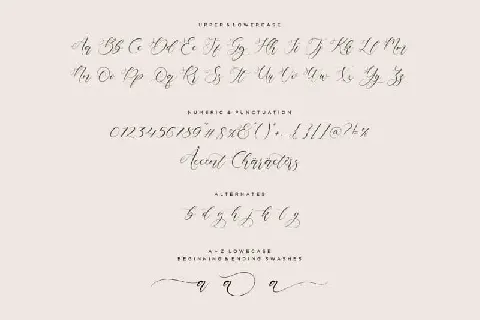 UPPER & LOWERCASE
Aa Bb Cc Dd Ee Ff Gg Hh Ii Jj Kk Ll Mm
Nn Oo Pp Qq Rr Ss Tt Uu Vv Ww Xx Yy Zz
NUMERIC & PUNCTUATION
0123456789
Accent Characters
ALTERNATES
b d g h j k l y
A-Z LOWECASE
BEGINNING & ENDING SWASHES
a a a